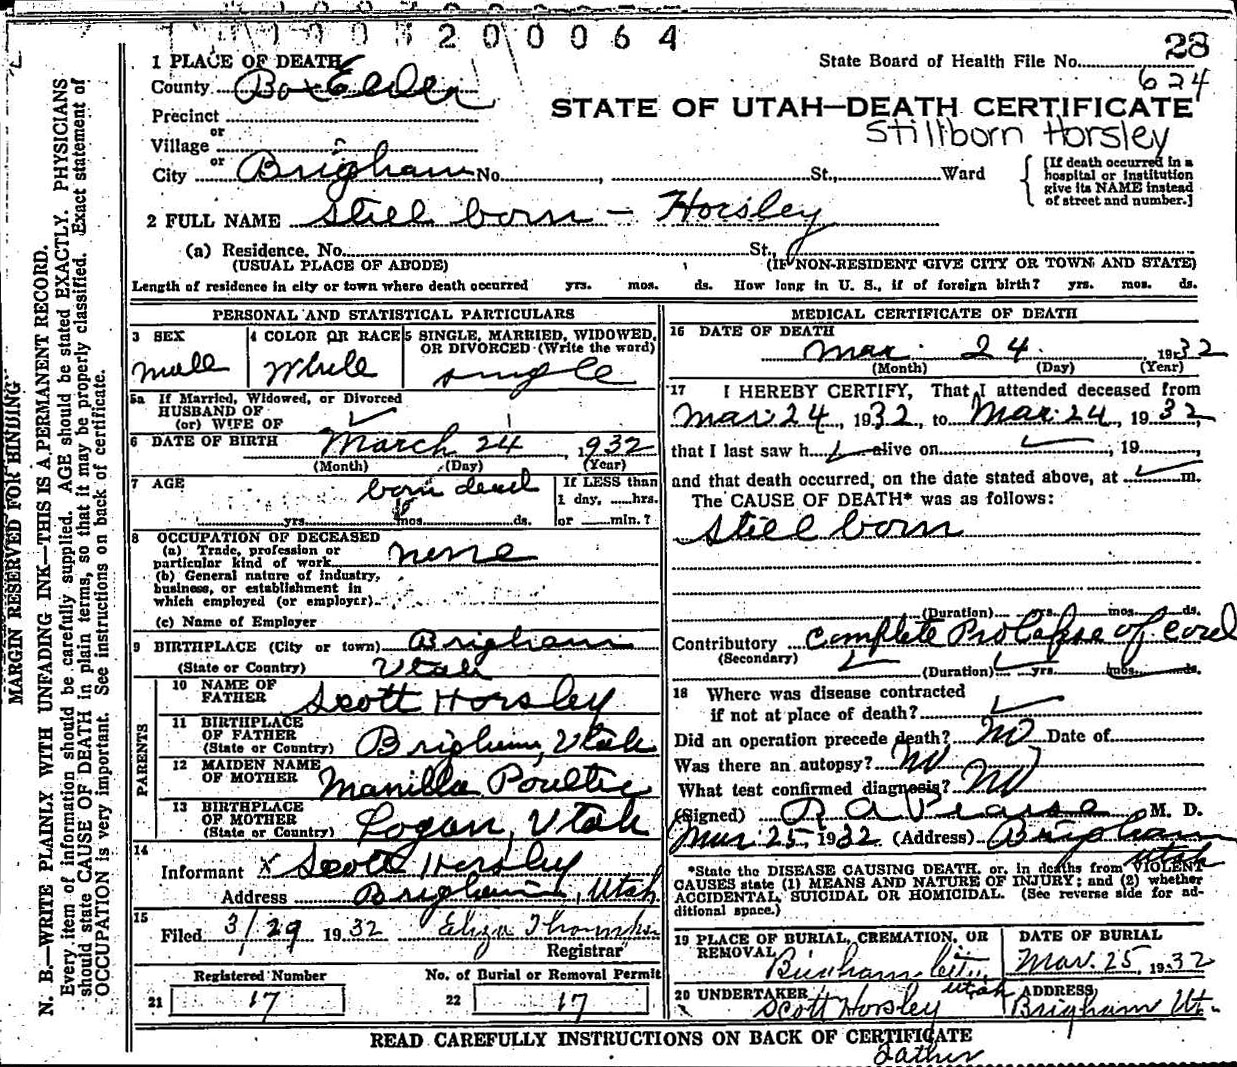 200064
28
1 PLACE OF DEATH
State Board of Health File No.
624
County Box Elder
STATE OF UTAH—DEATH CERTIFICATE
Precinct
Stillborn Horsley
or
Village
or
City Brigham No. , St., Ward
[If death occurred in a hospital or institution give its NAME instead of street and number.]
2 FULL NAME Still born – Horsley
(a) Residence. No. St.,
(USUAL PLACE OF ABODE) (IF NON-RESIDENT GIVE CITY OR TOWN AND STATE)
Length of residence in city or town where death occurred yrs. mos. ds. How long in U. S., if of foreign birth? yrs. mos. ds.
PERSONAL AND STATISTICAL PARTICULARS
3 SEX
male
4 COLOR OR RACE
White
5 SINGLE, MARRIED, WIDOWED, OR DIVORCED (Write the word)
single
5a If Married, Widowed, or Divorced
HUSBAND OF
(or) WIFE OF
6 DATE OF BIRTH March 24, 1932
(Month) (Day) (Year)
7 AGE born dead
yrs. mos. ds.
If LESS than
1 day, ......hrs.
or ......min.?
8 OCCUPATION OF DECEASED
(a) Trade, profession or
particular kind of work none
(b) General nature of industry,
business, or establishment in
which employed (or employer)
(c) Name of Employer
9 BIRTHPLACE (City or town) Brigham
(State or Country) Utah
PARENTS
10 NAME OF
FATHER Scott Horsley
11 BIRTHPLACE
OF FATHER
(State or Country) Brigham, Utah
12 MAIDEN NAME
OF MOTHER Manilla
13 BIRTHPLACE
OF MOTHER
(State or Country) Logan, Utah
14
Informant x Scott Horsley
Address Brigham, Utah
15
Filed 3/29 1932 Eliza
Registrar
Registered Number
21 17
No. of Burial or Removal Permit
22 17
MEDICAL CERTIFICATE OF DEATH
16 DATE OF DEATH
Mar. 24. 1932
(Month) (Day) (Year)
17 I HEREBY CERTIFY, That I attended deceased from
Mar 24, 1932, to Mar. 24, 1932,
that I last saw h alive on , 19 ,
and that death occurred, on the date stated above, at m.
The CAUSE OF DEATH* was as follows:
Still born
(Duration) yrs. mos. ds.
Contributory Complete Prolapse of Cord
(Secondary)
(Duration) yrs. mos. ds.
18 Where was disease contracted
if not at place of death?
Did an operation precede death? No Date of
Was there an autopsy? No
What test confirmed diagnosis? No
(Signed) R A Pearse M. D.
Mar 25, 1932 (Address) Brigham
Utah
*State the DISEASE CAUSING DEATH, or, in deaths from VIOLENT
CAUSES state (1) MEANS AND NATURE OF INJURY; and (2) whether
ACCIDENTAL, SUICIDAL OR HOMICIDAL. (See reverse side for ad-
ditional space.)
19 PLACE OF BURIAL, CREMATION, OR
REMOVAL
Brigham City,
Utah
DATE OF BURIAL
Mar. 25, 1932
20 UNDERTAKER
Scott Horsley
ADDRESS
Brigham Ut.
READ CAREFULLY INSTRUCTIONS ON BACK OF CERTIFICATE
father
MARGIN RESERVED FOR BINDING
N. B.—WRITE PLAINLY WITH UNFADING INK—THIS IS A PERMANENT RECORD.
Every item of information should be carefully supplied. AGE should be stated EXACTLY. PHYSICIANS
should state CAUSE OF DEATH in plain terms, so that it may be properly classified. Exact statement of
OCCUPATION is very important. See instructions on back of certificate.